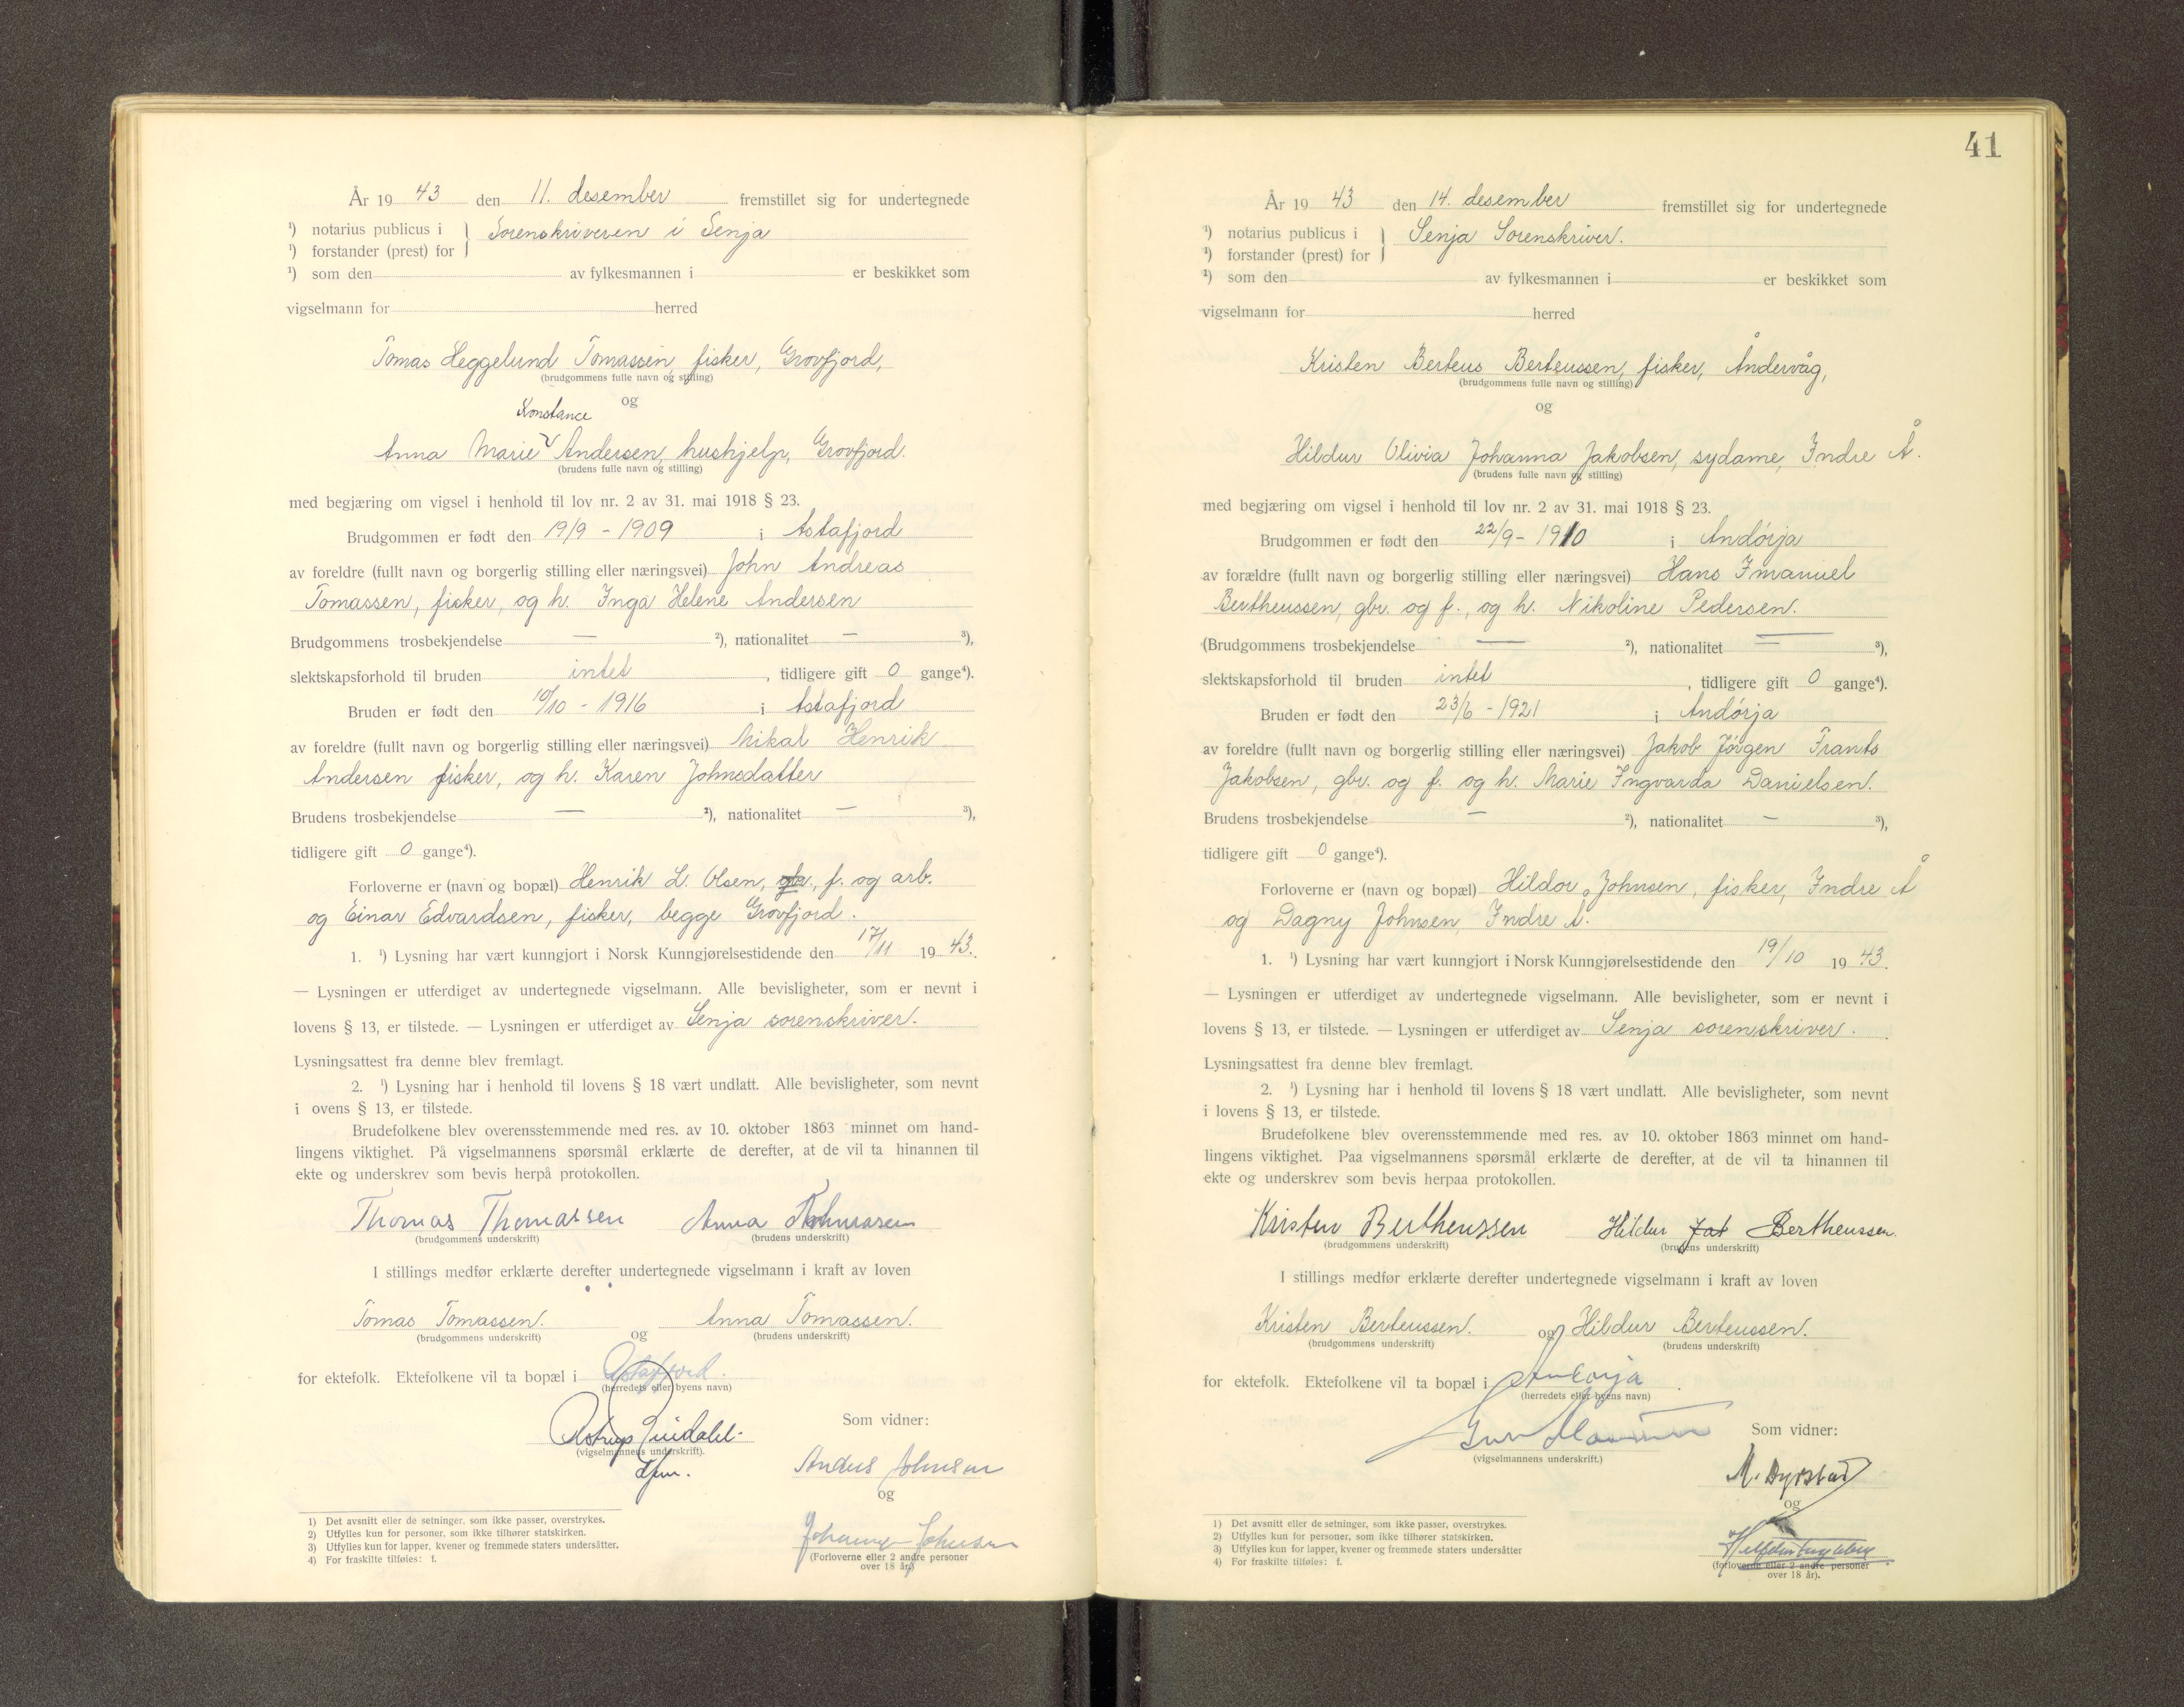 År 19 43 den 11. desember fremstillet sig for undertegnede
¹) notarius publicus i } Sorenskriveren i Senja
¹) forstander (prest) for
¹) som den av fylkesmannen i er beskikket som
vigselmann for herred
Tomas Heggelund Tomassen, fisker, Grovfjord,
(brudgommens fulle navn og stilling)
og
Konstance
Anna Marie Andersen, hushjelp, Grovfjord.
(brudens fulle navn og stilling)
med begjæring om vigsel i henhold til lov nr. 2 av 31. mai 1918 § 23.
Brudgommen er født den 19/9 - 1909 i Astafjord
av foreldre (fullt navn og borgerlig stilling eller næringsvei) John Andreas
Tomassen, fisker, og h. Inga Helene Andersen
Brudgommens trosbekjendelse — ²), nationalitet — ³),
slektskapsforhold til bruden intet , tidligere gift 0 gange⁴).
Bruden er født den 10/10 - 1916 i Astafjord
av foreldre (fullt navn og borgerlig stilling eller næringsvei) Mikal Henrik
Andersen fisker, og h. Karen Johnsdatter
Brudens trosbekjendelse — ²), nationalitet — ³),
tidligere gift 0 gange⁴).
Forloverne er (navn og bopæl) Henrik L. Olsen, gbr., f. og arb.
og Einar Edvardsen, fisker, begge Grovfjord.
1. ¹) Lysning har vært kunngjort i Norsk Kunngjørelsestidende den 17/11 19 43.
— Lysningen er utferdiget av undertegnede vigselmann. Alle bevisligheter, som er nevnt i
lovens § 13, er tilstede. — Lysningen er utferdiget av Senja sorenskriver.
Lysningsattest fra denne blev fremlagt.
2. ¹) Lysning har i henhold til lovens § 18 vært undlatt. Alle bevisligheter, som nevnt
i ovens § 13, er tilstede.
Brudefolkene blev overensstemmende med res. av 10. oktober 1863 minnet om hand-
lingens viktighet. På vigselmannens spørsmål erklærte de derefter, at de vil ta hinannen til
ekte og underskrev som bevis herpå protokollen.
Thomas Thomassen Anna Thomassen
(brudgommens underskrift) (brudens underskrift)
I stillings medfør erklærte derefter undertegnede vigselmann i kraft av loven
Tomas Tomassen. og Anna Tomassen.
(brudgommens underskrift) (brudens underskrift)
for ektefolk. Ektefolkene vil ta bopæl i Astafjord.
(herredets eller byens navn)
Som vidner:
(vigselmannens underskrift).
Johnsen
og
Johnsen
(Forloverne eller 2 andre personer
over 18 år)
1) Det avsnitt eller de setninger, som ikke passer, overstrykes.
2) Utfylles kun for personer, som ikke tilhører statskirken.
3) Utfylles kun for lapper, kvener og fremmede staters undersåtter.
4) For fraskilte tilføies: f.
41
År 19 43 den 14. desember fremstillet sig for undertegnede
¹) notarius publicus i } Senja Sorenskriver.
¹) forstander (prest) for
¹) som den av fylkesmannen i er beskikket som
vigselmann for herred
Kristen Berteus Berteussen, fisker, Åndervåg,
(brudgommens fulle navn og stilling)
og
Hildur Olivia Johanna Jakobsen, sydame, Indre Å.
(brudens fulle navn og stilling)
med begjæring om vigsel i henhold til lov nr. 2 av 31. mai 1918 § 23.
Brudgommen er født den 22/9 - 1910 i Andørja
av forældre (fullt navn og borgerlig stilling eller næringsvei) Hans Imanuel
Bertheussen, gbr. og f., og h. Nikoline Pedersen.
(Brudgommens trosbekjendelse — ²), nationalitet — ³),
slektskapsforhold til bruden intet , tidligere gift 0 gange⁴).
Bruden er født den 23/6 - 1921 i Andørja
av foreldre (fullt navn og borgerlig stilling eller næringsvei) Jakob Jørgen Frants
Jakobsen, gbr. og f. og h. Marie Ingvarda Danielsen.
Brudens trosbekjendelse — ²), nationalitet — ³),
tidligere gift 0 gange⁴).
Forloverne er (navn og bopæl) Hildor Johnsen, fisker, Indre Å
og Dagny Johnsen, Indre Å.
1. ¹) Lysning har vært kunngjort i Norsk Kunngjørelsestidende den 19/10 19 43.
— Lysningen er utferdiget av undertegnede vigselmann. Alle bevisligheter, som er nevnt i
lovens § 13, er tilstede. — Lysningen er utferdiget av Senja sorenskriver.
Lysningsattest fra denne blev fremlagt.
2. ¹) Lysning har i henhold til lovens § 18 vært undlatt. Alle bevisligheter, som nevnt
i lovens § 13, er tilstede.
Brudefolkene blev overensstemmende med res. av 10. oktober 1863 minnet om hand-
lingens viktighet. Paa vigselmannens spørsmål erklærte de derefter, at de vil ta hinannen til
ekte og underskrev som bevis herpaa protokollen.
Kristen Bertheussen Hildur Jak Bertheussen.
(brudgommens underskrift) (brudens underskrift)
I stillings medfør erklærte derefter undertegnede vigselmann i kraft av loven
Kristen Berteussen. og Hildur Berteussen.
(brudgommens underskrift) (brudens underskrift)
for ektefolk. Ektefolkene vil ta bopæl i Andørja.
(herredets eller byens navn)
Som vidner:
(vigselmannens underskrift.)
M. Dyrstad
og
(forloverne eller 2 andre personer
over 18 år).
1) Det avsnitt eller de setninger, som ikke passer, overstrykes.
2) Utfylles kun for personer, som ikke tilhører statskirken.
3) Utfylles kun for lapper, kvener og fremmede staters undersåtter
4) For fraskilte tilføies: f.